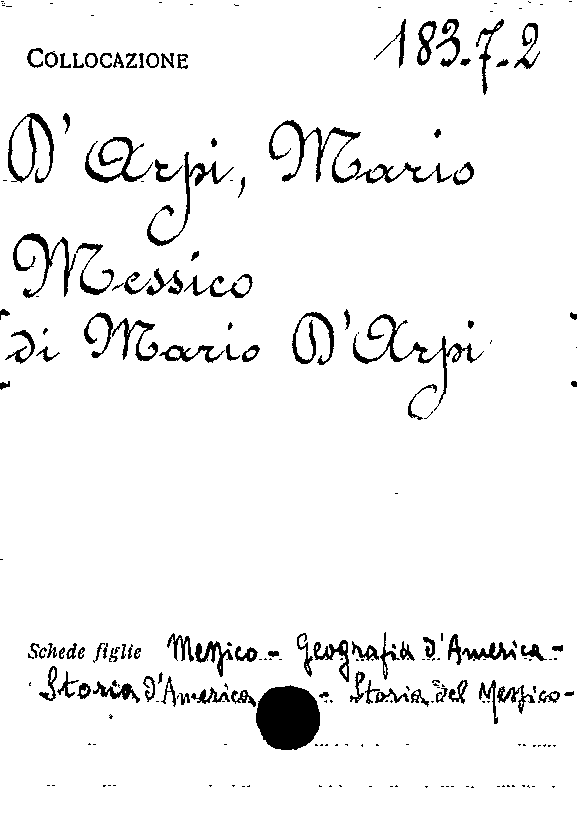 COLLOCAZIONE 183.7.2
D'Arpi, Mario
Messico
di Mario D'Arpi
Schede figlie Messico - Geografia d'America -
Storia d'America - Storia del Messico -